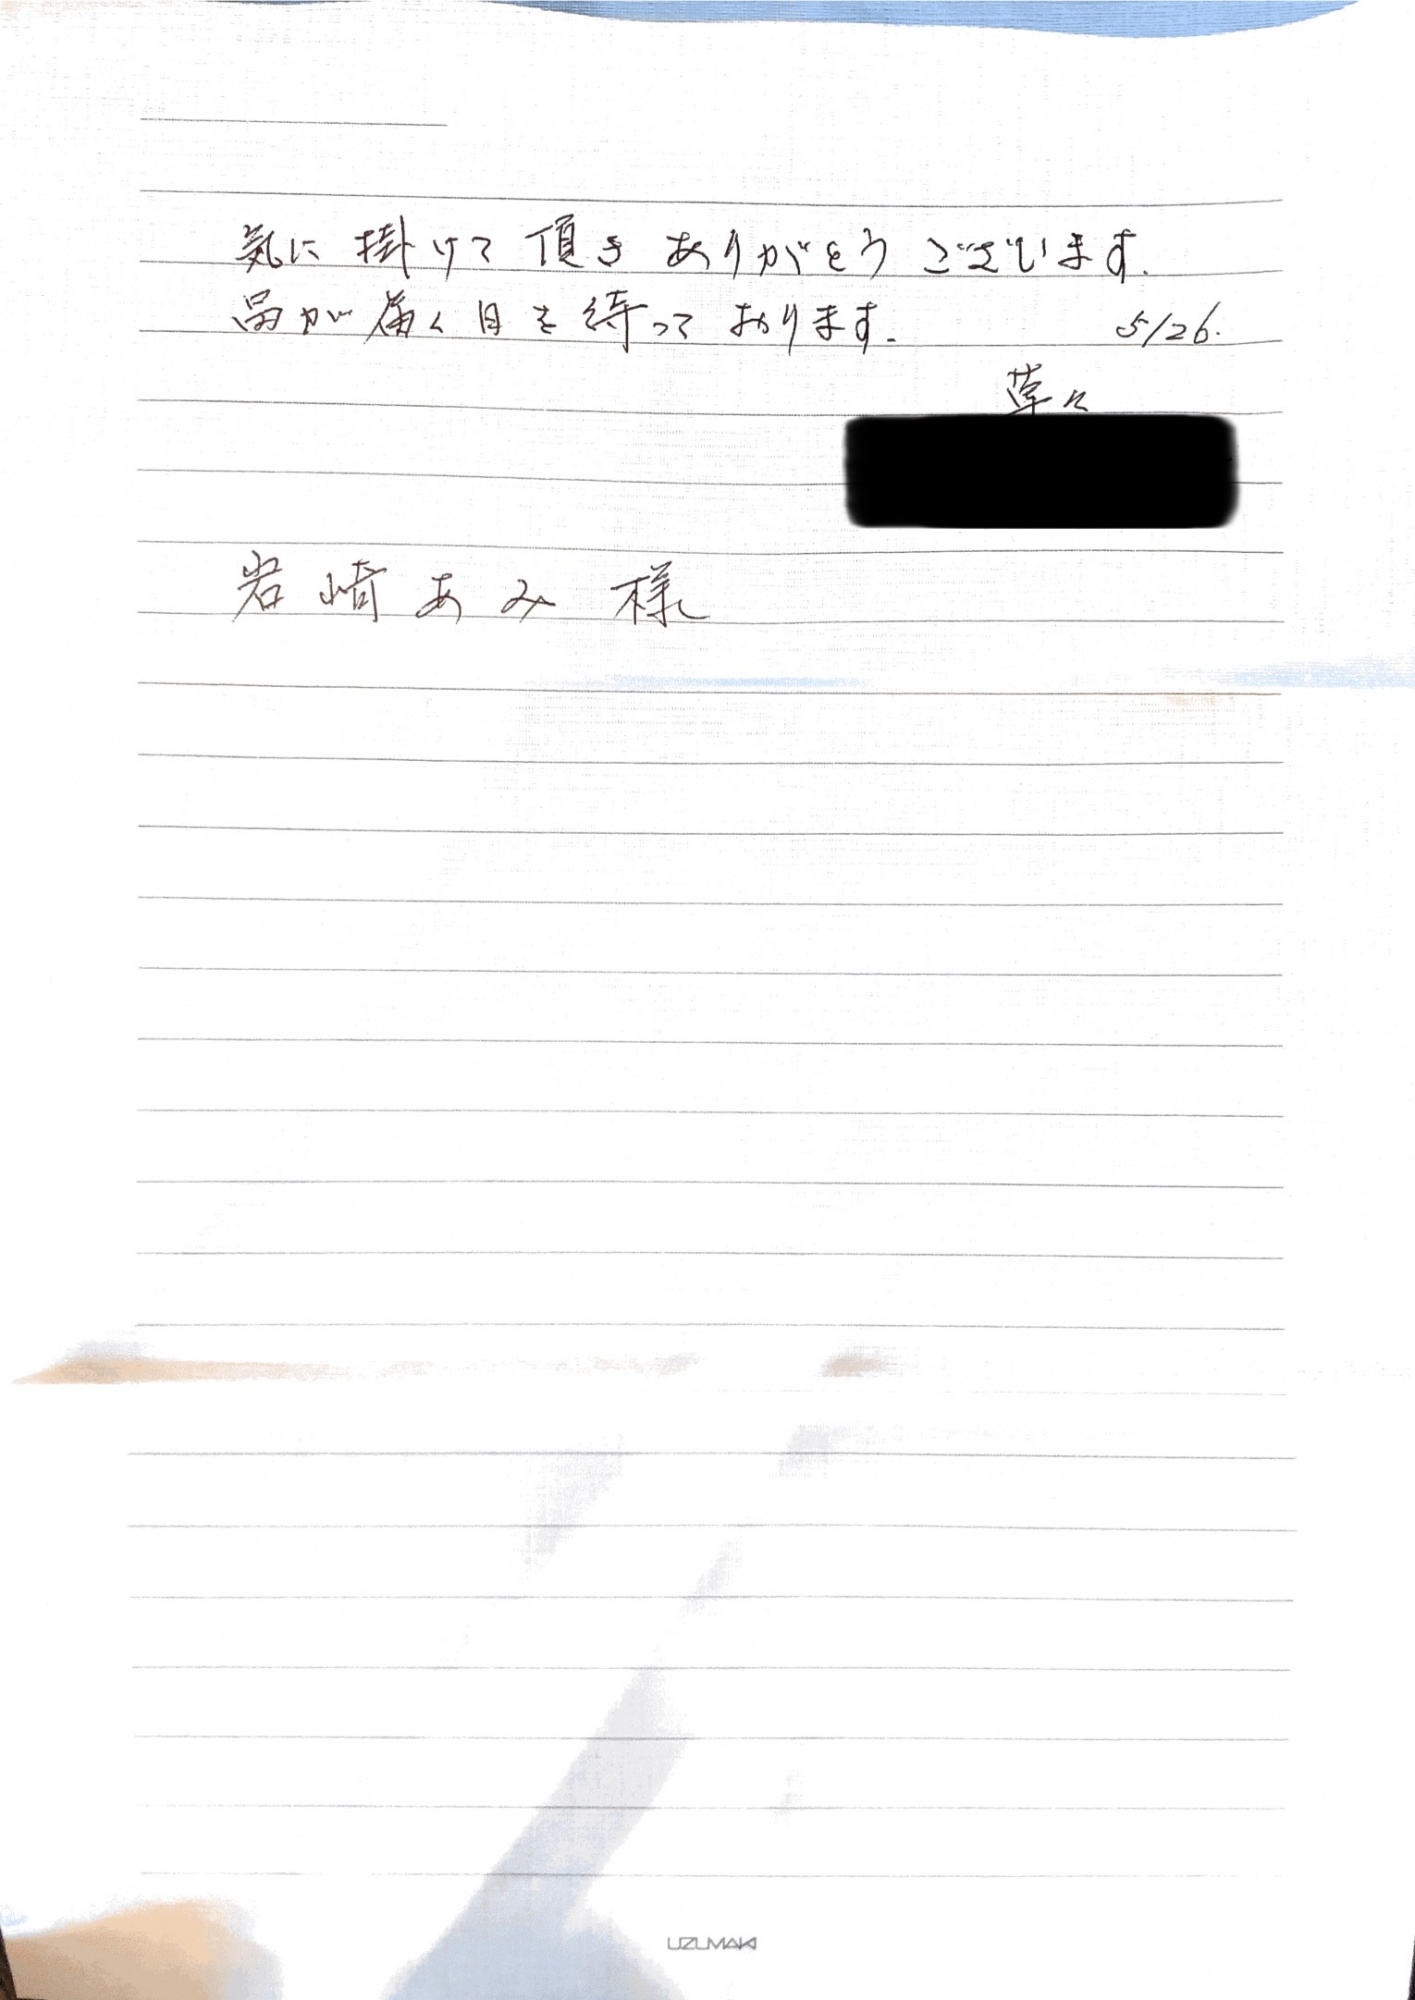 気に掛けて頂きありがとうございます.
品が届く日を待っております. 5/26.
草々
岩崎あみ様
UZUMAKI